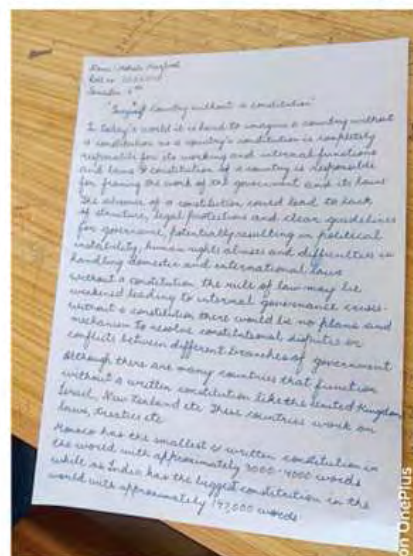 Name:
Roll no
Semester 6th
"Imagine Country without a constitution"
In today's world it is hard to imagine a country without
a constitution as a country's constitution is completely
responsible for its working and internal functions
and laws constitution of a country is responsible
for framing the work of the government and its laws
The absence of a constitution could lead to lack
of structure, legal protections and clear guidelines
for governance, potentially resulting in political
instability, human rights abuses and difficulties in
handling domestic and international laws
Without a constitution the rule of law may be
weakened leading to internal governance crisis-
without a constitution there would be no plans and
mechanism to resolve constitutional disputes or
conflicts between different branches of government
Although there are many countries that function
without a written constitution like the United Kingdom,
Israel, New Zealand etc These countries work on
laws, treaties etc
Monaco has the smallest written constitution in
the world with approximately 3000-4000 words
while as India has the biggest constitution in the
world with approximately 147,000 words
on OnePlus